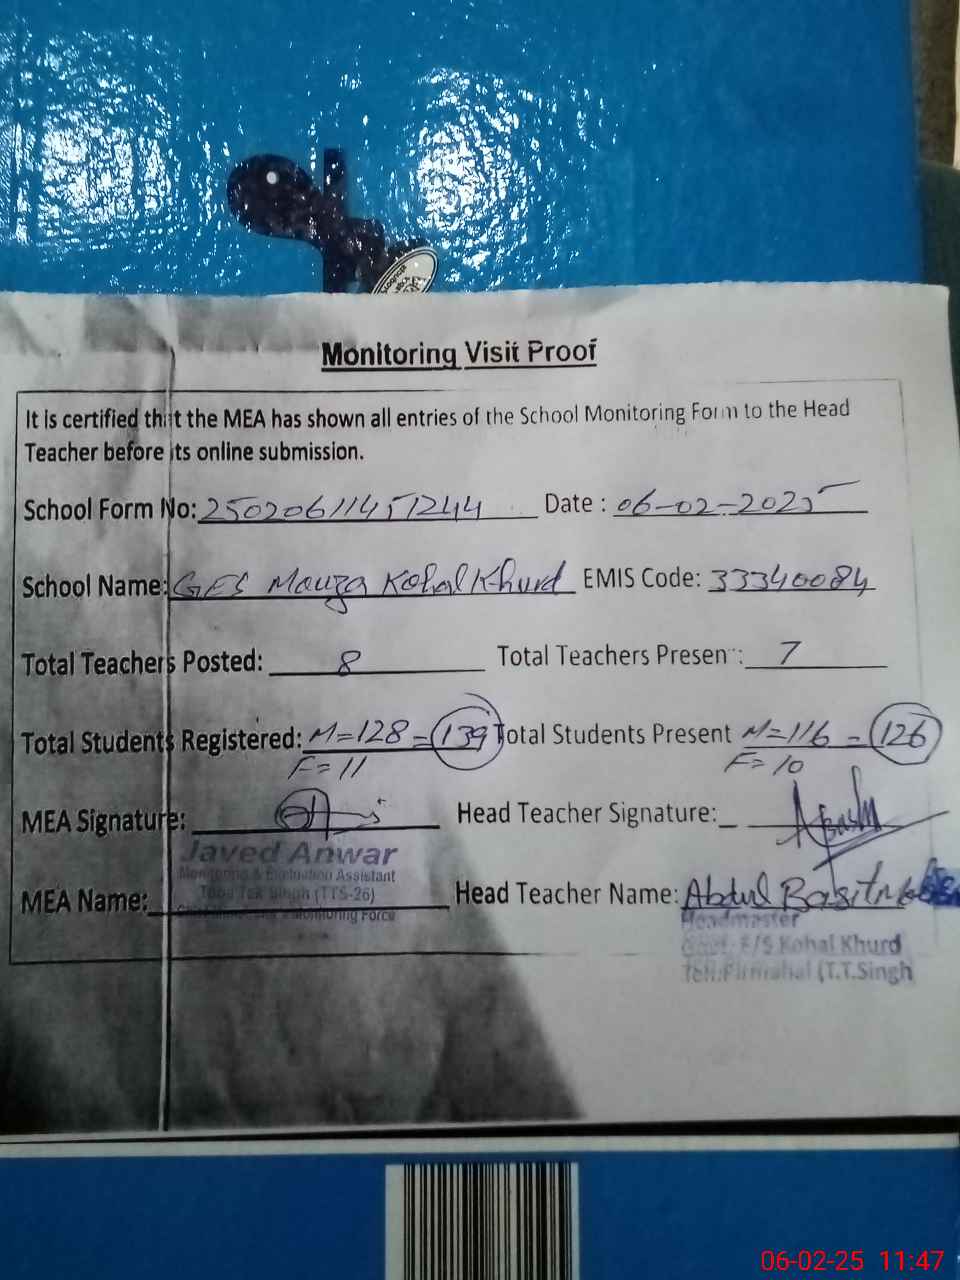 Monitoring Visit Proof
It is certified that the MEA has shown all entries of the School Monitoring Form to the Head
Teacher before its online submission.
School Form No: 25020611451244 Date : 06-02-2025
School Name: GES Mauza Kohal Khurd EMIS Code: 33340084
Total Teachers Posted: 8 Total Teachers Present: 7
Total Students Registered: M=128 = 139 Total Students Present M=116 = 126
F=11 F=10
MEA Signature: Head Teacher Signature:
Javed Anwar
Monitoring & Evaluation Assistant
Toba Tek Singh (TTS-26)
Monitoring Force
MEA Name: Head Teacher Name: Abdul Basit
Headmaster
Govt. E/S Kohal Khurd
Teh:Pirmahal (T.T.Singh
06-02-25 11:47